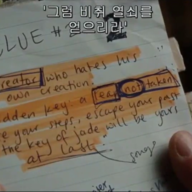 '그럼 비취 열쇠를
얻으리라'
CLUE #
creator who hates his
own creation
hidden key a leap not taken
your steps escape your past
the key of jade will be yours
at last